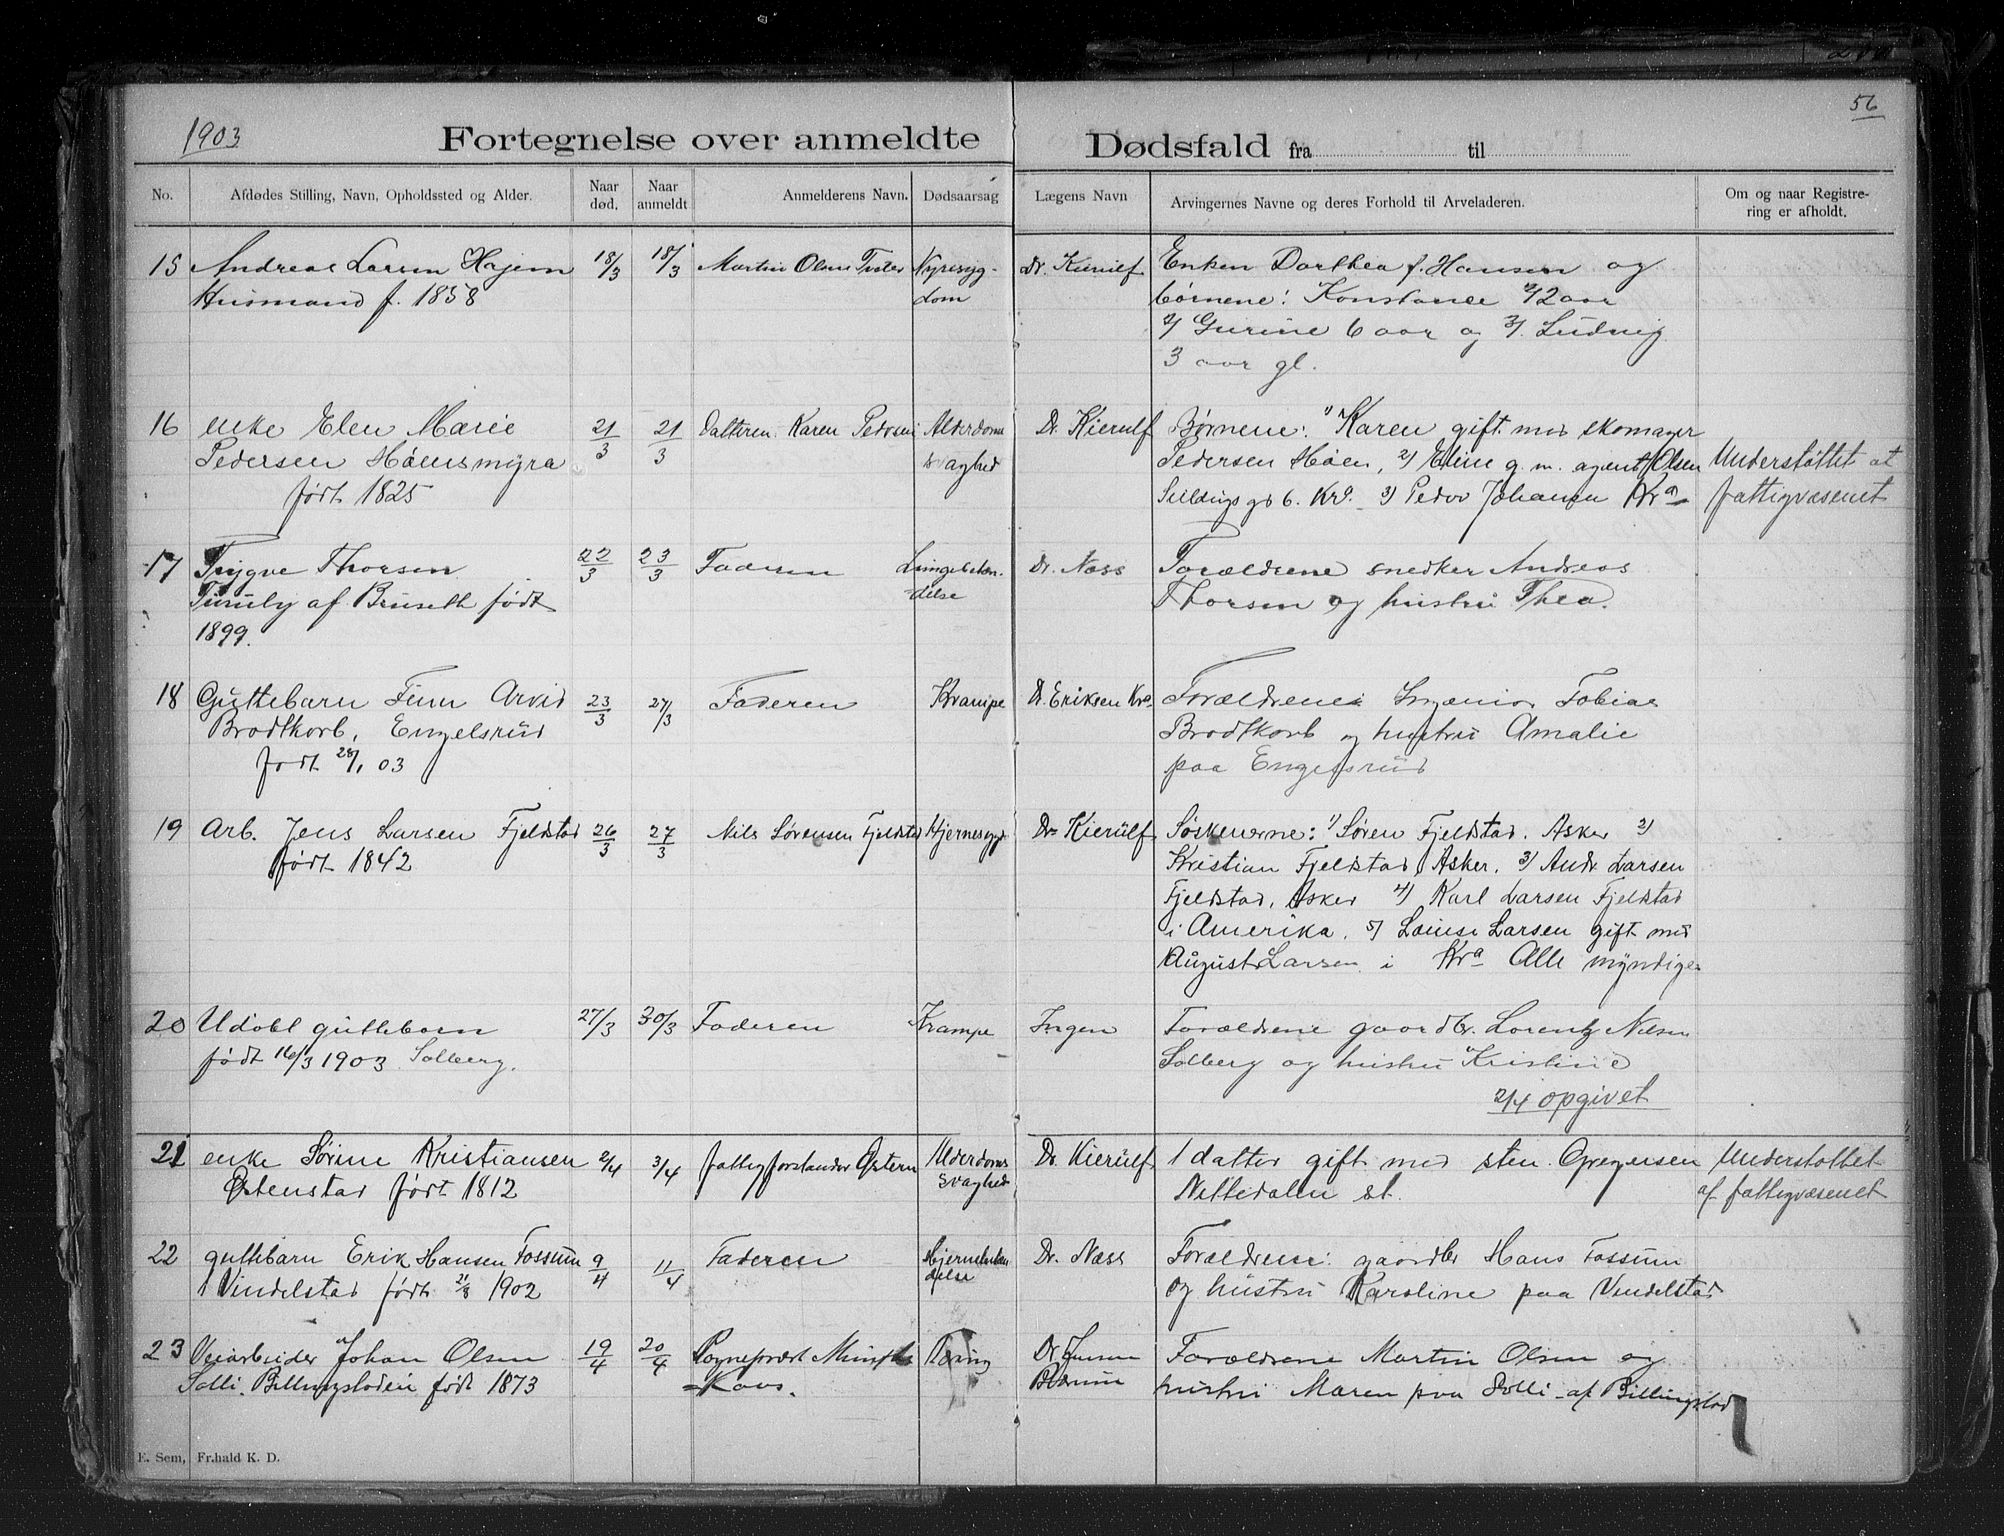 1903
56
Fortegnelse over anmeldte Dødsfald fra til
No. Afdødes Stilling, Navn, Opholdssted og Alder. Naar død. Naar anmeldt Anmelderens Navn. Dødsaarsag Lægens Navn Arvingernes Navne og deres Forhold til Arveladeren. Om og naar Registrering er afholdt.
15 Andreas Larsen Hajem 18/3 18/3 Martin Olsen Nyresyg- Dr. Kierulf Enken Dorthea f. Hansen og
Husmand f. 1858 dom børnene: Konstance 12 aar
2/ Gurine 6 aar og 3/ Ludvig
3 aar gl.
16 enke Elen Marie 21/3 21/3 Datteren Karen Pedersen Alderdoms Dr. Kierulf Børnene: 1/ Karen gift med skomager
Pedersen Høensmyra svaghed Pedersen Høen, 2/ Eline g. m. agent Olsen Understøttet af
født 1825 gd 6. Kra. 3/ Peder Johansen Kra fattigvæsenet
17 Trygve Thorsen 22/3 23/3 Faderen Lungebetæn- Dr. Næss Forældrene snedker Andreas
af Bruseth født delse Thorsen og hustru Thea.
1899.
18 Guttebarn Finn Arvid 23/3 27/3 Faderen Krampe Dr. Eriksen Kra. Forældrene Ingeniør Tobias
Brodtkorb, Engelsrud Brodtkorb og hustru Amalie
født 28/1 03 paa Engelsrud
19 Arb. Jens Larsen Fjeldstad 26/3 27/3 Nils Sørensen Fjeldstad Hjernesygd Dr. Kierulf Søskenerne: 1/ Søren Fjeldstad. Asker 2/
født 1842 Kristian Fjeldstad, Asker. 3/ Andr. Larsen
Fjeldstad, Asker 4/ Karl Larsen Fjeldstad
i Amerika. 5/ Louise Larsen gift med
August Larsen i Kra Alle myndige
20 Udøbt guttebarn 27/3 30/3 Faderen Krampe Ingen Forældrene gaardbr. Lorentz Nilsen
født 16/3 1903 Solberg. Solberg og hustru Kristine
2/4 opgivet
21 enke Sørine Kristiansen 2/4 3/4 fattigforstander Østern Alderdoms Dr. Kierulf 1 datter gift med sten. Gregersen Understøttet
Østenstad født 1812 svaghed Nittedalen st. af fattigvæsenet
22 guttebarn Erik Hansen Fossum 9/4 11/4 Faderen Hjernebetæn Dr. Næss Forældrene: gaardbr Hans Fossum
Vindelstad født 21/8 1902 delse og hustru Karoline paa Vindelstad
23 Veiarbeider Johan Olsen 19/4 20/4 Sogneprært Munthe Tæring Dr Jensen Forældrene Martin Olsen og
Solli. Billingstadeie født 1873 Kaas. Bærum hustru Maren paa Solli af Billingstad
E. Sem, Fr.hald K. D.